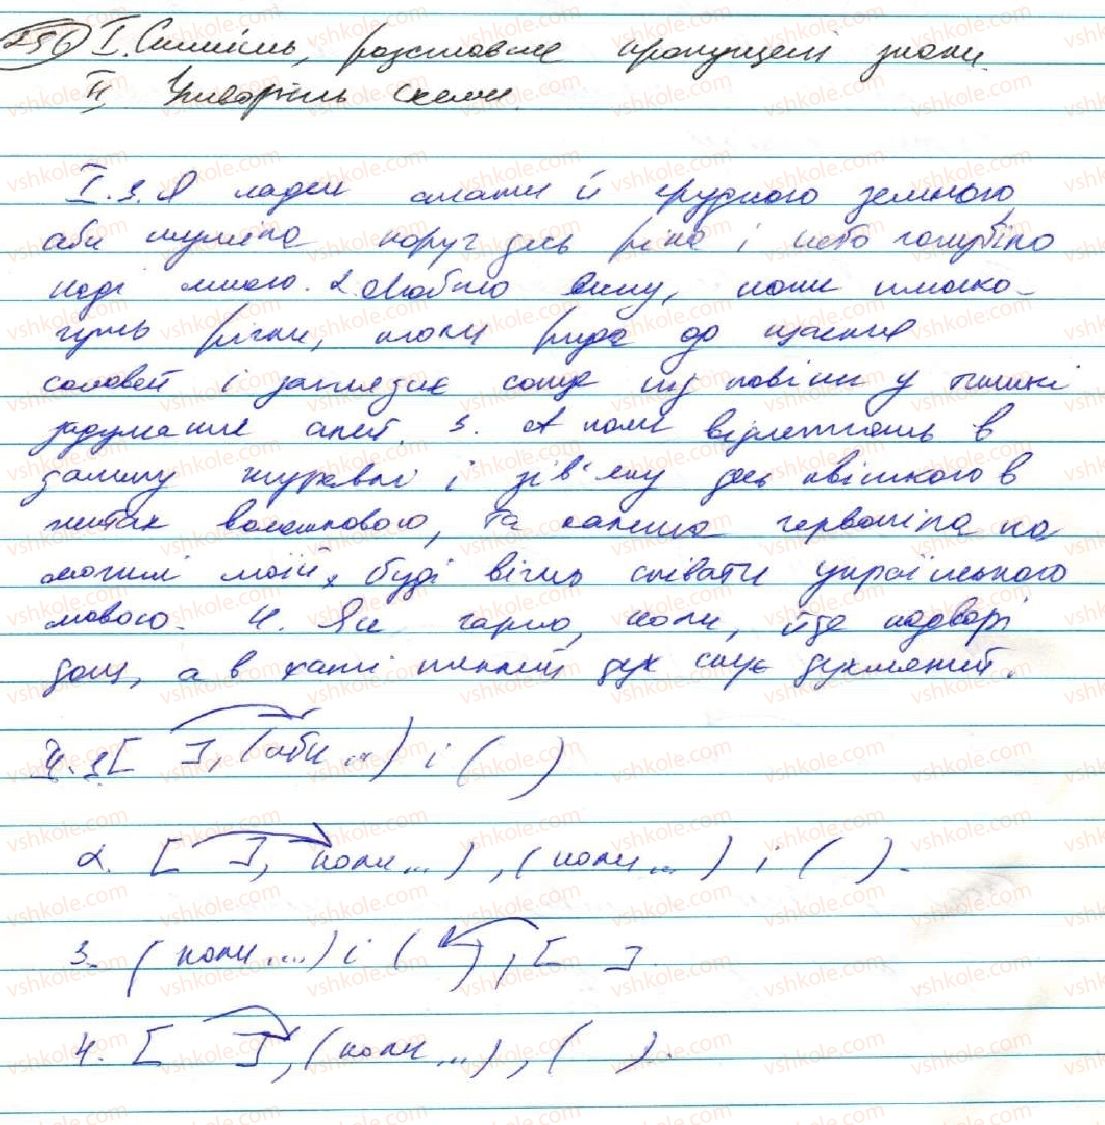 256 I. Спишіть, розставте пропущені знаки.
II. Накресліть схеми.
I. 1. Я ладен спати й грудкою земною,
аби шуміла поруч десь ріка і небо голубіло
наді мною. 2. Люблю весну, коли
річки, коли рида до щастя
соловей і заглядає сонце під повіки у
задумание алей. 3. А коли відлетять в
далину журавлі і зів'яну десь квіткою в
житах волошковою, та калина червоніла на
могилі моїй, буді вічно співати українською
мовою. 4. Як гарно, коли, йде надворі
дощ, а в хаті тихий дух снує духмяний.
II. 1. [ ], (аби ...) і ( )
2. [ ], коли ...), (коли ...) і ( ).
3. (коли ...) і ( ), [ ].
4. [ ], (коли ...), ( ).